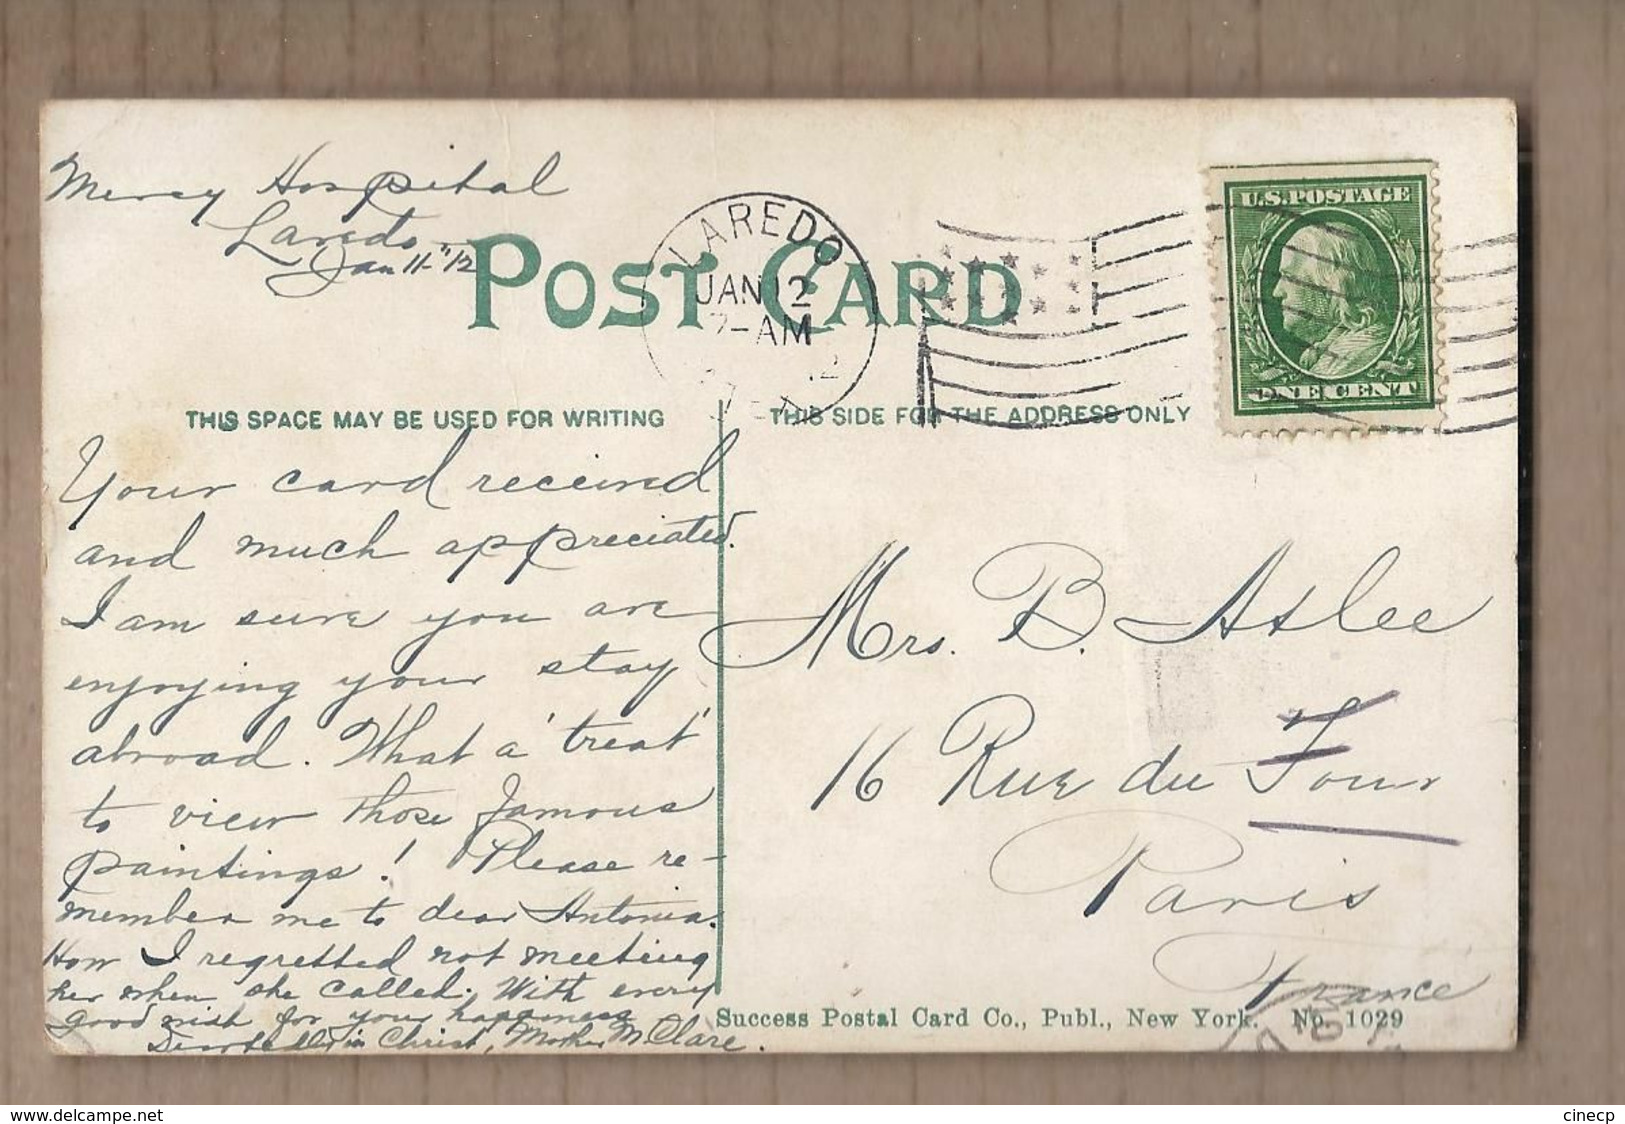 Mercy Hospital
Laredo
Jan 11-"12
POST CARD
LAREDO
JAN 12
7-AM
12
U.S. POSTAGE
ONE CENT
THIS SPACE MAY BE USED FOR WRITING
THIS SIDE FOR THE ADDRESS ONLY
Your card received
and much appreciated.
I am sure you are
enjoying your stay
abroad. What a 'treat'
to view those famous
paintings! Please re-
member me to dear Antonia.
How I regretted not meeting
her when she called. With every
good wish for your happiness
in Christ, Mother M. Clare.
Mrs. B. Aslee
16 Rue du Four
Paris
France
Success Postal Card Co., Publ., New York. No. 1029
www.delcampe.net
cinecp